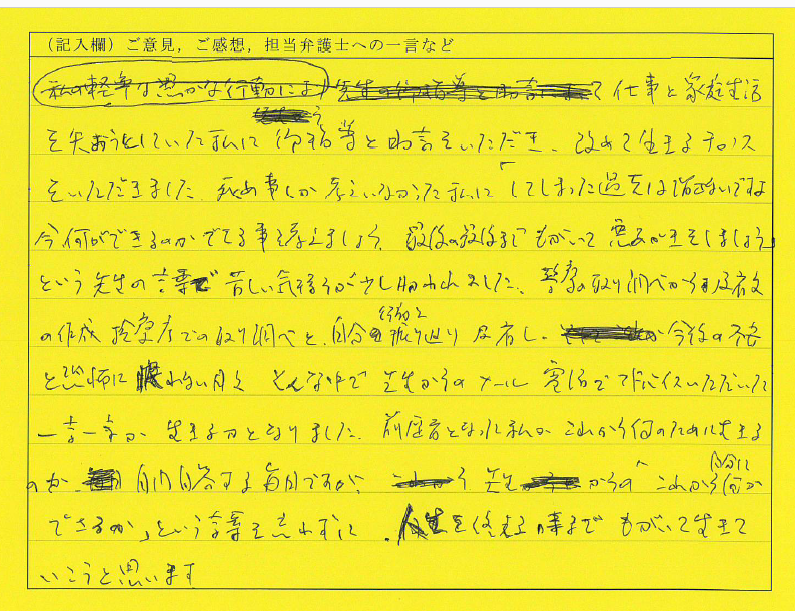 (記入欄) ご意見, ご感想, 担当弁護士への一言など
私の軽率な愚かな行動により 先生の御指導と助言 て 仕事と家庭生活
を失おうとしていた私に 御指導と助言をいただき、改めて生きるチャンス
をいただきました。死ぬ事しか考えいなかった私に「してしまった過去は
今何ができるのかできる事を考えましょう。最後の最後まで もがいて 悪あがきをしましょう」
という先生の言葉で苦しい気持ちが少し われました。警察の取り調べから反省文
の作成 検察庁での取り調べと、自分の行動を振り返り 反省し、 今後の不安
と恐怖に れない日々 そんな中で 先生からのメール 電話でアドバイスいただいた
一言一言が 生きる力となりました。前歴者となった私が これから何のために生きる
のか、 自問自答する毎日ですが、 先生 からの「これから自分に何が
できるか」という言葉を忘れずに、人生を終える時まで もがいて生きて
いこうと思います